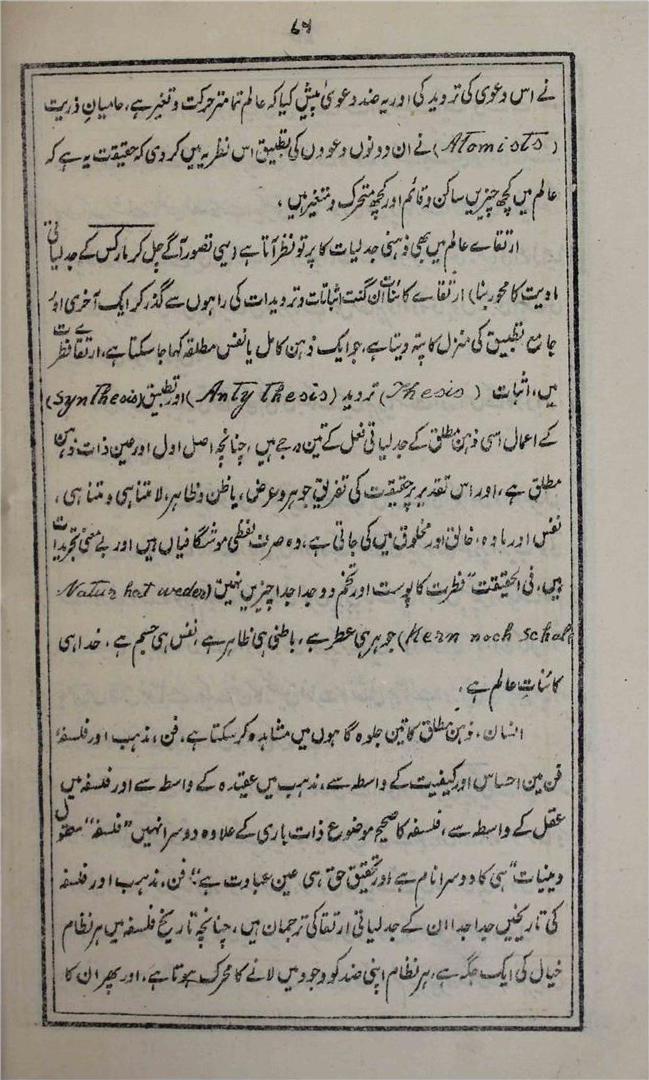 ۶۵
نے اس دعویٰ کی تردید کی اور یہ ضد دعویٰ پیش کیا کہ عالم تمامتر حرکت و تغیر ہے، حامیان ذریت
(Atomists) نے ان دونوں دعووں کی تطبیق اس نظریہ میں کر دی کہ حقیقت یہ ہے کہ
عالم میں کچھ چیزیں ساکن و قائم اور کچھ متحرک و متغیر ہیں،
ارتقائے عالم میں بھی ذہنی جدلیات کا پرتو نظر آتا ہے (یہی تصور آگے چل کر مارکس کے جدلیاتی
مادیت کا محور بنا) ارتقائے کائنات ان گنت اثباتات و تردیدات کی راہوں سے گذر کر ایک آخری اور
جامع تطبیق کی منزل کا پتہ دیتا ہے، جو ایک ذہن کامل یا نفس مطلقہ کہا جا سکتا ہے، ارتقائے فطرت
میں، اثبات (Thesis) تردید (Antythesis) اور تطبیق (Synthesis)
کے اعمال اسی ذہن مطلق کے جدلیاتی فعل کے تین درجے ہیں، چنانچہ اصل اول اور عین ذات ذہن
مطلق ہے، اور اس تقدیر پر حقیقت کی تفریق جوہر و عرض، باطن و ظاہر، لا متناہی و متناہی،
نفس اور مادہ، خالق اور مخلوق میں کی جاتی ہے، وہ صرف لفظی موشگافیاں ہیں اور بے معنی تجریدات
ہیں، فی الحقیقت "فطرت کا پوست اور تخم دو جدا جدا چیزیں نہیں (Natur hat weder
Kern noch Schale) جوہر ہی عطر ہے، باطنی ہی ظاہر ہے، نفس ہی جسم ہے، خدا ہی
کائنات عالم ہے،
انسان، ذہن مطلق کا تین جلوہ گاہوں میں مشاہدہ کر سکتا ہے، فن، مذہب اور فلسفہ
فن میں احساس اور کیفیت کے واسطہ سے، مذہب میں عقیدہ کے واسطہ سے اور فلسفہ میں
عقل کے واسطہ سے، فلسفہ کا صحیح موضوع ذات باری کے علاوہ دوسرا نہیں "فلسفہ" معقول
دینیات" ہی کا دوسرا نام ہے اور تحقیق حق ہی عین عبادت ہے؛ فن، مذہب اور فلسفہ
کی تاریخیں جدا جدا ان کے جدلیاتی ارتقا کی ترجمان ہیں، چنانچہ تاریخ فلسفہ میں ہر نظام
خیال کی ایک جگہ ہے، ہر نظام اپنی ضد کو وجود میں لانے کا محرک ہوتا ہے، اور پھر ان کا